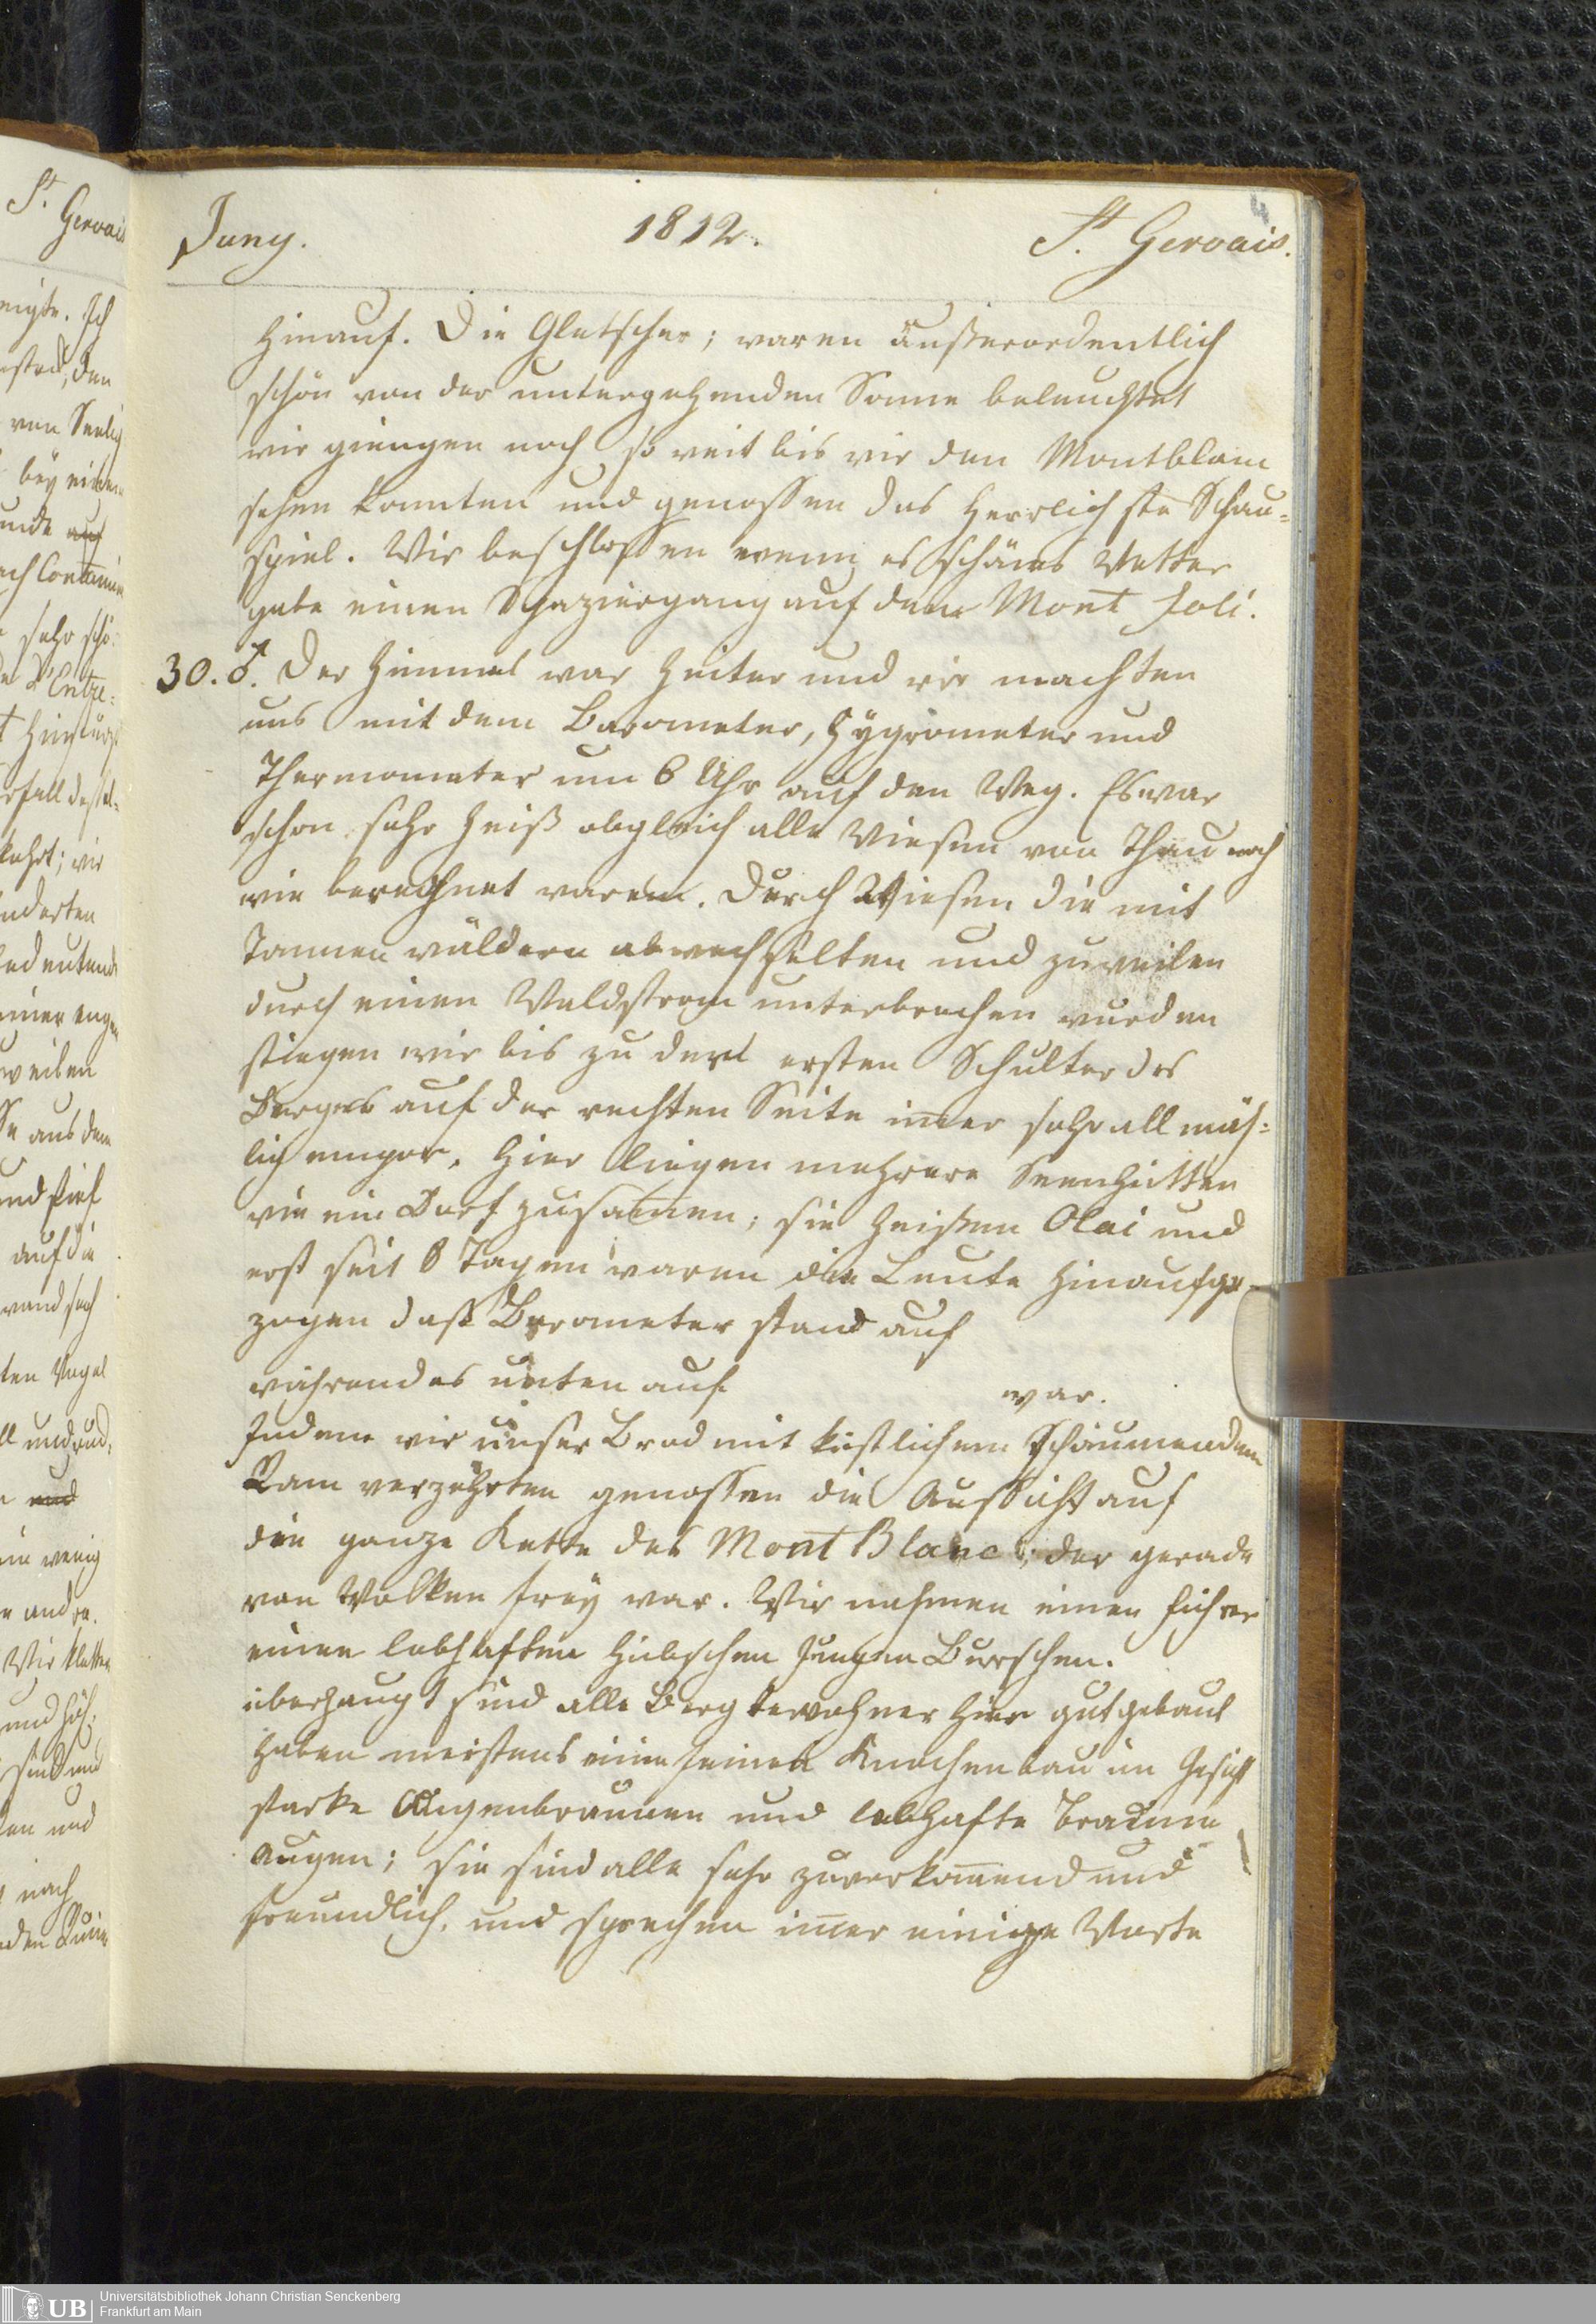 Juny. 1812. St. Gervais.
4
hinauf. Die Gletscher; waren außerordentlich
schön von der untergehenden Sonne beleuchtet
wir giengen noch so weit bis wir den Montblanc
sehen konnten und genossen das herrlichste Schau-
spiel. Wir beschlossen wenn es schönes Wetter
gebe einen Spaziergang auf den Mont Joli.
30. ♂. Der Himmel war heiter und wir machten
uns mit dem Barometer, Hygrometer und
Thermometer um 6 Uhr auf den Weg. Es war
schon sehr heiß obgleich alle Wiesen von Thau noch
wie beregnet waren. Durch Wiesen die mit
Tannenwäldern abwechselten und zuweilen
durch einen Waldstrom unterbrochen wurden
stiegen wir bis zu der ersten Schulter des
Berges auf der rechten Seite im̅er sehr allmäh-
lig empor. Hier liegen mehrere Senhütten
wie ein Dorf zusam̅en; sie heißen Olai und
erst seit 8 Tagen waren die Leute hinaufge-
zogen daß Barometer stand auf
während es unten auf war.
Indem wir unser Brod mit köstlichem schäumendem
Ram verzehrten genossen die Aussicht auf
die ganze Kette des Mont Blanc; der gerade
von Wolken frey war. Wir nahmen einen Führer
einen lebhaften hübschen jungen Burschen.
überhaupt sind alle Bergbewohner hier gut gebaut
haben meistens einen feinen Knochenbau im Gesicht
starke Augenbraunen und lebhafte braune
Augen; sie sind alle sehr zuvorkom̅end und
freundlich, und sprechen im̅er einige Worte
UB Universitätsbibliothek Johann Christian Senckenberg
Frankfurt am Main